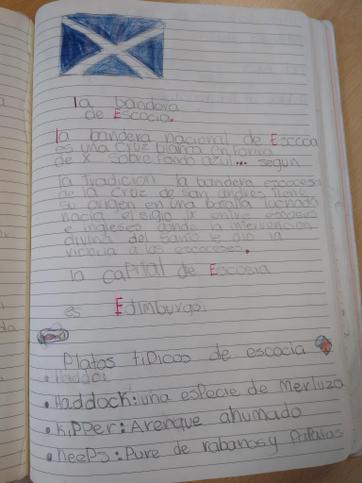 la bandera
de Escocia.
la bandera nacional de Escocia
es una cruz blanca en forma
de X sobre fondo azul... segun
la tradición la bandera escocesa
de la cruz de san andres tiene
su origen en una batalla luchada
hacia el siglo IX entre escoses
e ingleses donde la intervención
divina del santo le dio la
victoria a los escoceses.
la capital de Escosia
es Edimburgo.
Platos tipicos de escocia
• Haddock: una especie de Merluza
• Kipper: Arenque ahumado
• neeps: Pure de rabanos y Papatas